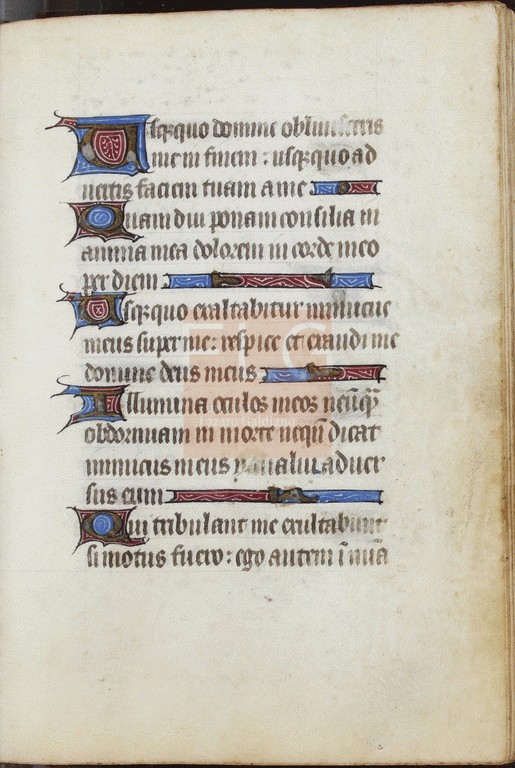 Usq̃quo domine obliuisceris
me in finem : usq̃quo ad
uertis faciem tuam a me
Quam diu ponam consilia in
anima mea dolorem in corde meo
per diem
Usq̃quo exaltabitur inimicus
meus super me : respice et exaudi me
domine deus meus
Illumina oculos meos ne
obdormiam in morte neqũ dicat
inimicus meus preualui aduer
sus eum
Qui tribulant me exultabunt
si motus fuero : ego autem ĩ